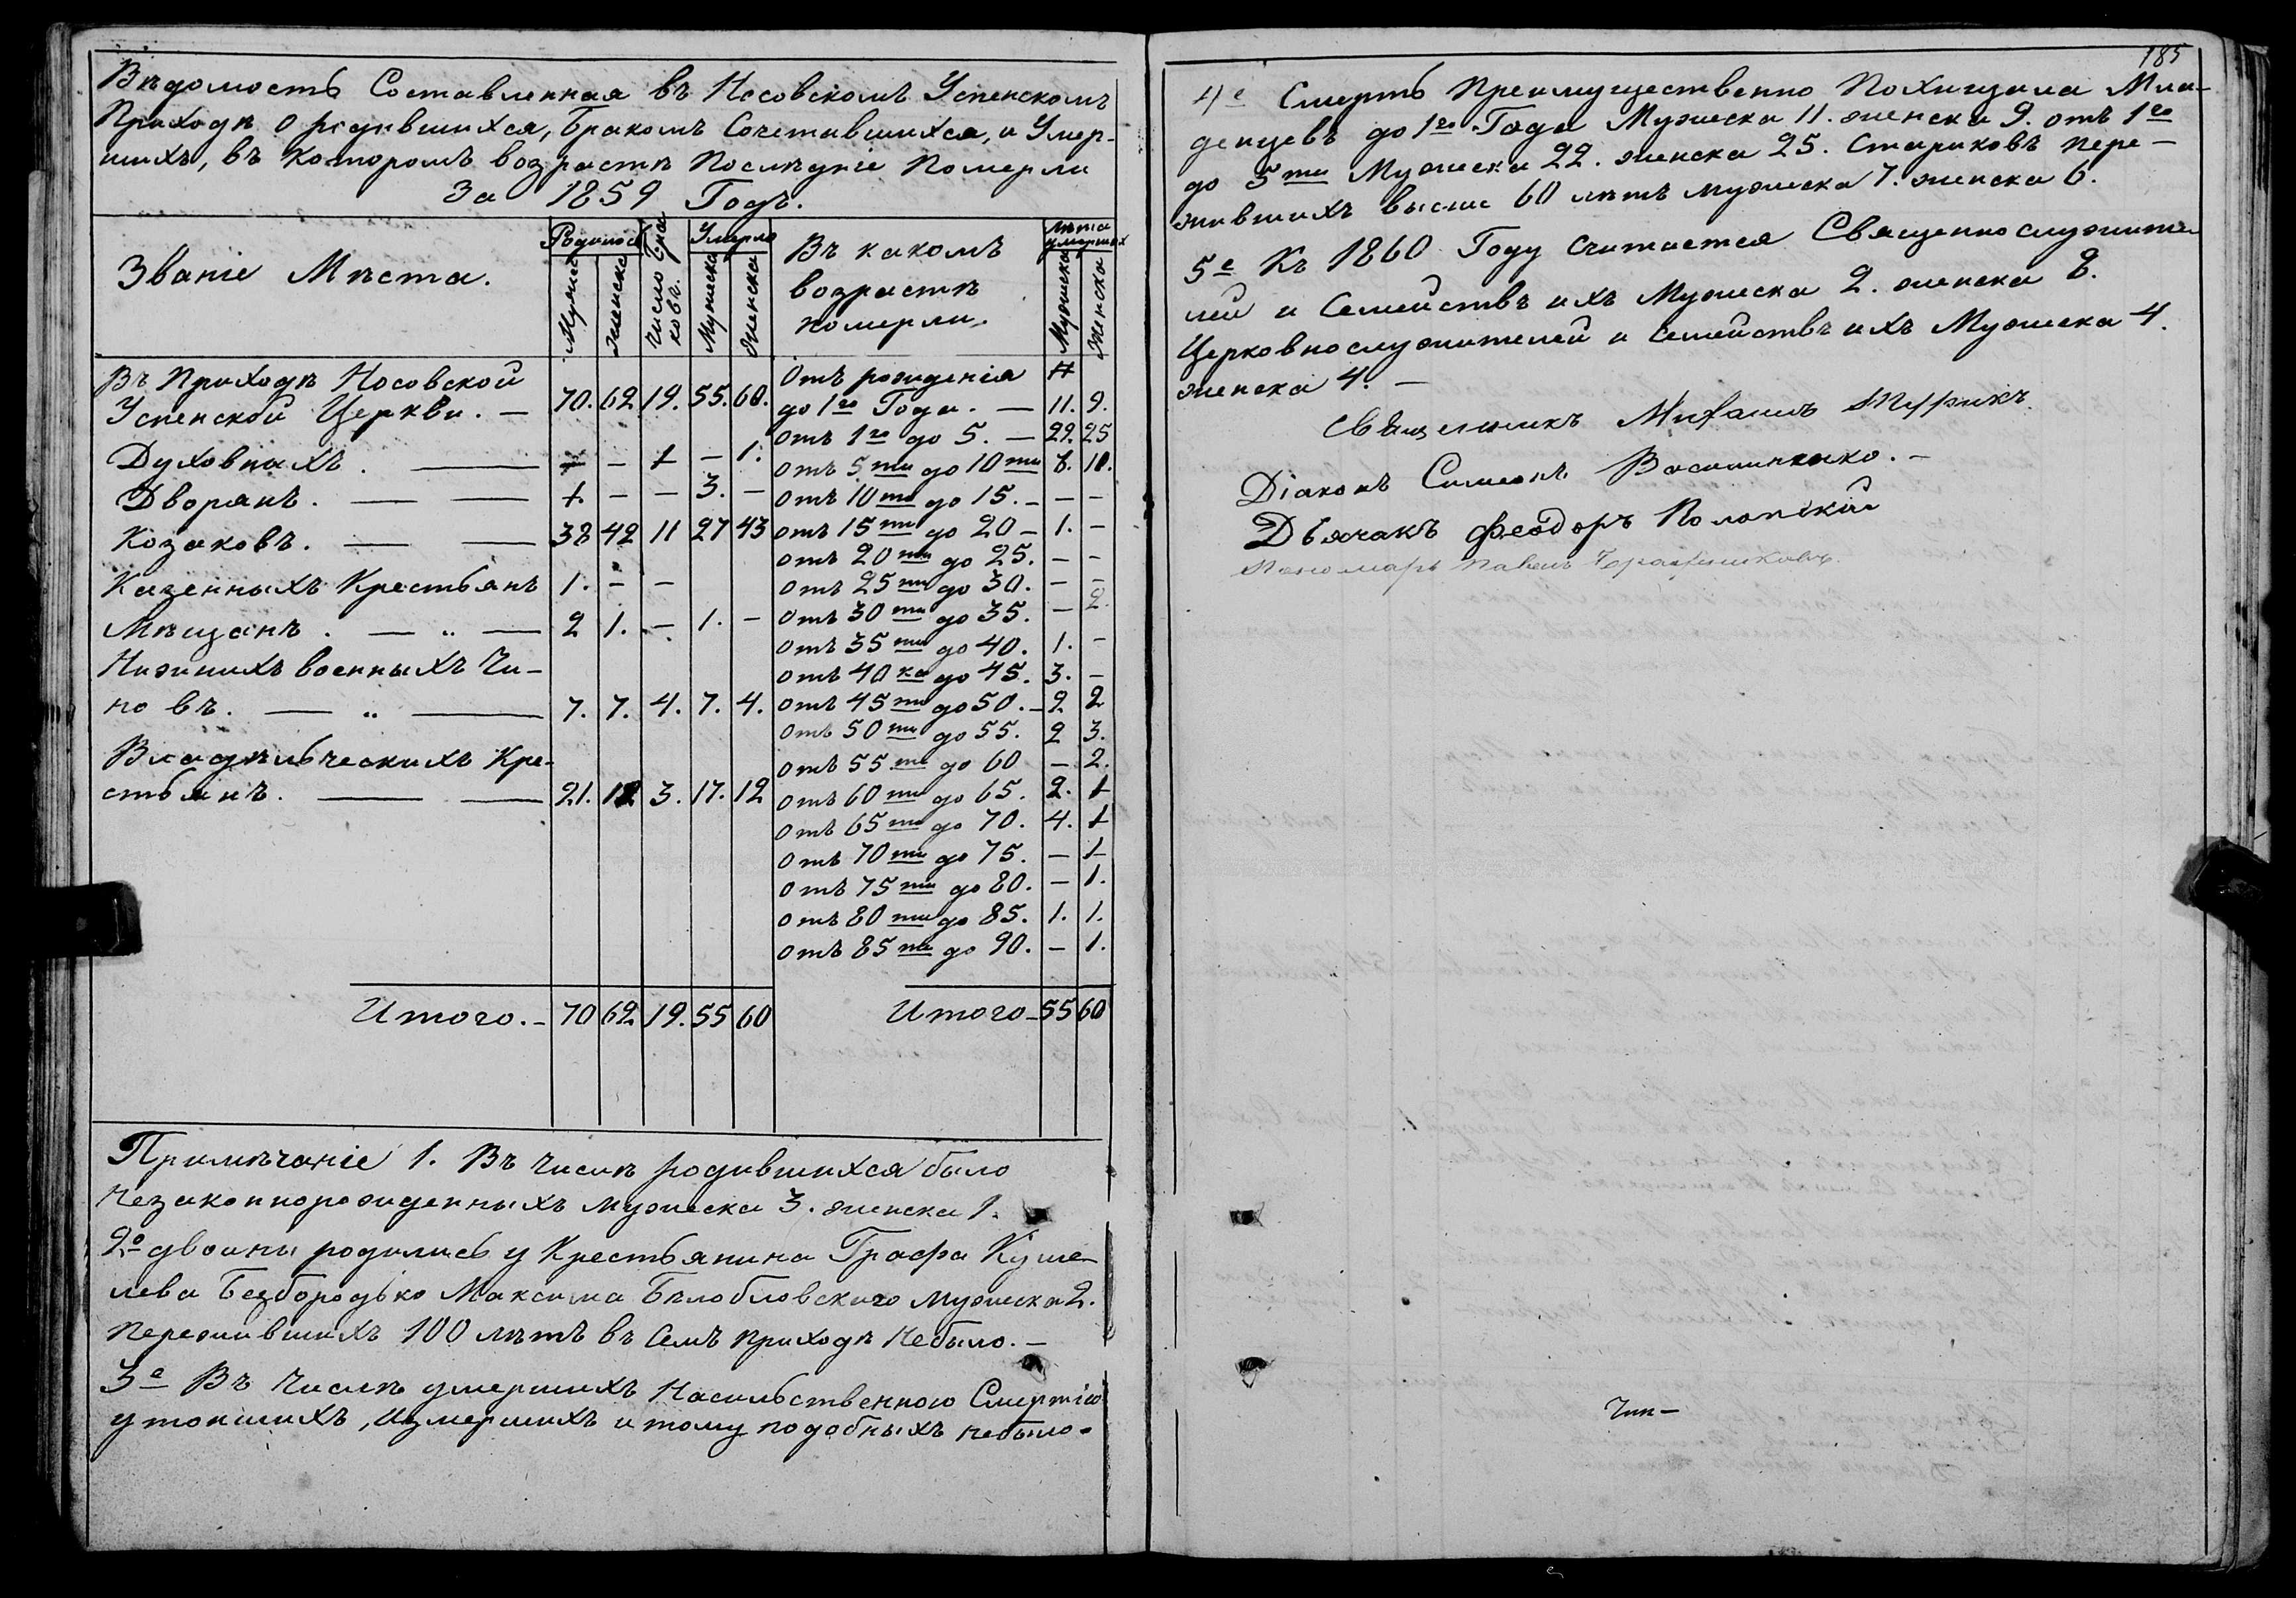 Вѣдомость Составленная въ Носовскомъ Успенскомъ
Приходѣ о родившихся, бракомъ Сочетавшихся, и Умер-
шихъ, въ которомъ возрастѣ Послѣдніе Померли
За 1859 Годъ.
Званіе Мѣста.
Родилось
Мужеска
Женска
Число бра
ковъ.
Умерло
Мужеска
Женска
Въ какомъ
возрастѣ
померли.
Лѣта
умершихъ
Мужеска
Женска
Въ Приходѣ Носовской
Успенской Церкви. — 70. 62 19. 55. 60.
Духовныхъ. — — — 1 — 1.
Дворянъ. — — 1. — — 3. —
Козаковъ. — — 38 42 11 27 43
Казенныхъ Крестьянъ 1. — —
Мѣщанъ. — „ — 2 1. — 1. —
Нижнихъ военныхъ Чи-
новъ. — „ — 7. 7. 4. 7. 4.
Владѣльческихъ Кре-
стьянъ. — — 21. 12 3. 17. 12
Итого. — 70 62 19. 55 60
Отъ рожденія
до 1го Года. — 11. 9.
отъ 1го до 5. — 22. 25
отъ 5ти до 10ти 8. 10.
отъ 10ти до 15. — — —
отъ 15ти до 20 — 1. —
отъ 20ти до 25. — —
отъ 25ти до 30. — —
отъ 30ти до 35. — 2.
отъ 35ти до 40. 1. —
отъ 40ка до 45. 3. —
отъ 45ти до 50. — 2 2
отъ 50ти до 55. 2 3.
отъ 55ти до 60 — 2.
отъ 60ти до 65. 2. 1
отъ 65ти до 70. 4. 1
отъ 70ти до 75. — 1
отъ 75ти до 80. — 1.
отъ 80ти до 85. 1. 1.
отъ 85ти до 90. — 1.
Итого — 55 60
Примѣчаніе 1. Въ Числѣ родившихся было
Незаконнорожденныхъ мужеска 3. женска 1.
2е двойни родились у Крестьянина Графа Куше-
лева Безбородько Максима Бѣлобловскаго мужеска 2.
Пережившихъ 100 лѣтъ въ Семъ Приходѣ небыло. —
3е Въ Числѣ умершихъ Насильственною Смертію
утопшихъ, измершихъ и тому подобныхъ небыло.
185
4е Смерть Преимущественно Похищала Мла-
денцевъ до 1го Года Мужеска 11. женска 9. отъ 1го
до 5ти Мужеска 22. женска 25. Стариковъ пере-
жившихъ выше 60 лѣтъ мужеска 7. женска 6.
5е Къ 1860 Году Считается Священнослужите-
лей и Семействъ ихъ Мужеска 2. женска 8.
Церковнослужителей и Семействъ ихъ Мужеска 4.
женска 4. —
Священникъ Михаилъ
Діаконъ Симеонъ
Дьячакъ Феодоръ
Пономарь Павелъ